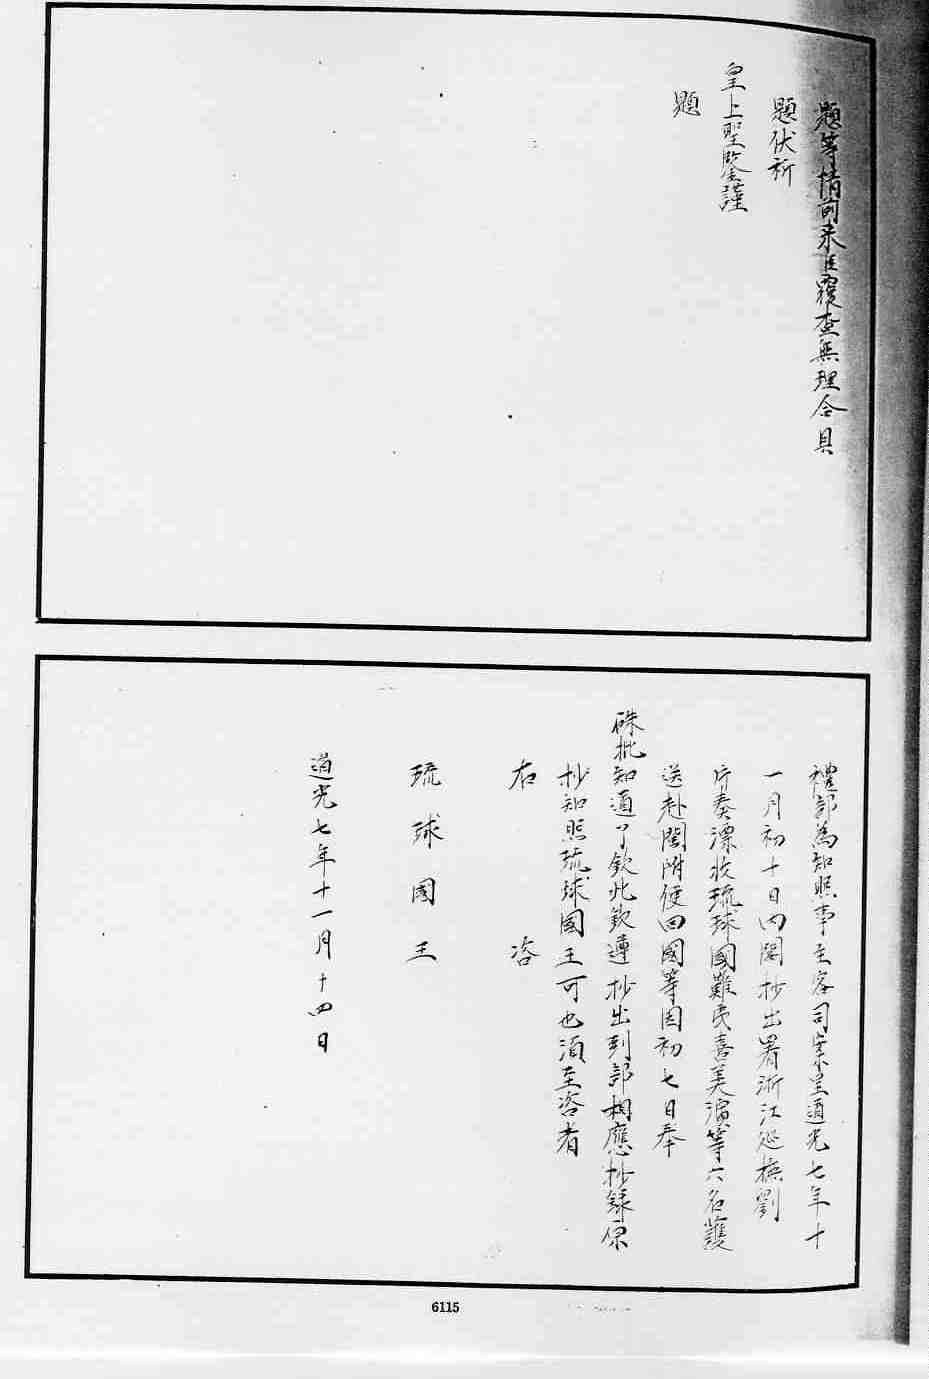 題等情前來臣覆查無理合具
題伏祈
皇上聖鑒謹
題
禮部為知照事主客司案呈道光七年十
一月初十日內閣抄出署浙江巡撫劉
片奏漂收琉球國難民喜美濱等六名護
送赴閩附便回國等因初七日奉
硃批知道了欽此欽遵抄出到部相應抄録原
抄知照琉球國王可也須至咨者
右咨
琉球國王
道光七年十一月十四日
6115